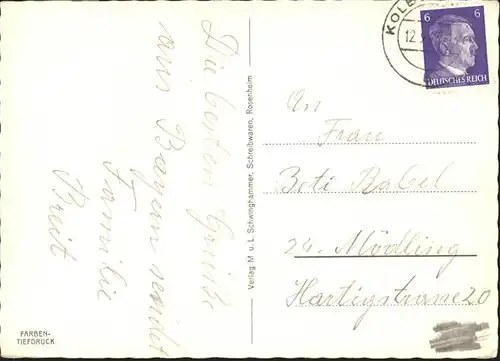 Die besten Grüße
aus Bayern sendet
Familie
Breit
Verlag M. u. L. Schwinghammer, Schreibwaren, Rosenheim
FARBEN-
TIEFDRUCK
KOLB
12.
6 6
DEUTSCHES REICH
An
Frau
Beti Babel
24. Mödling
Hartigstrasse 20